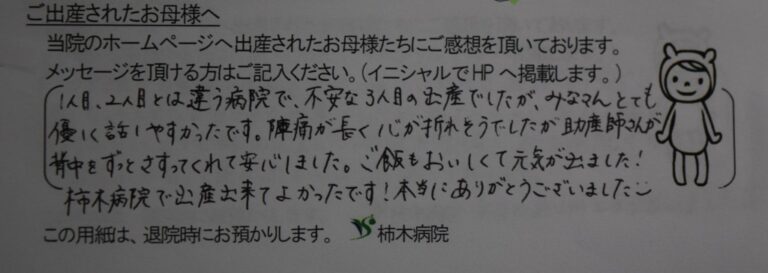 ご出産されたお母様へ
当院のホームページへ出産されたお母様たちにご感想を頂いております。
メッセージを頂ける方はご記入ください。(イニシャルでHPへ掲載します。)
1人目、2人目とは違う病院で、不安な3人目の出産でしたが、みなさんとても
優しく話しやすかったです。陣痛が長く心が折れそうでしたが助産師さんが
背中をずっとさすってくれて安心しました。ご飯もおいしくて元気が出ました!
柿木病院で出産出来てよかったです!本当にありがとうございました
この用紙は、退院時にお預かりします。 柿木病院